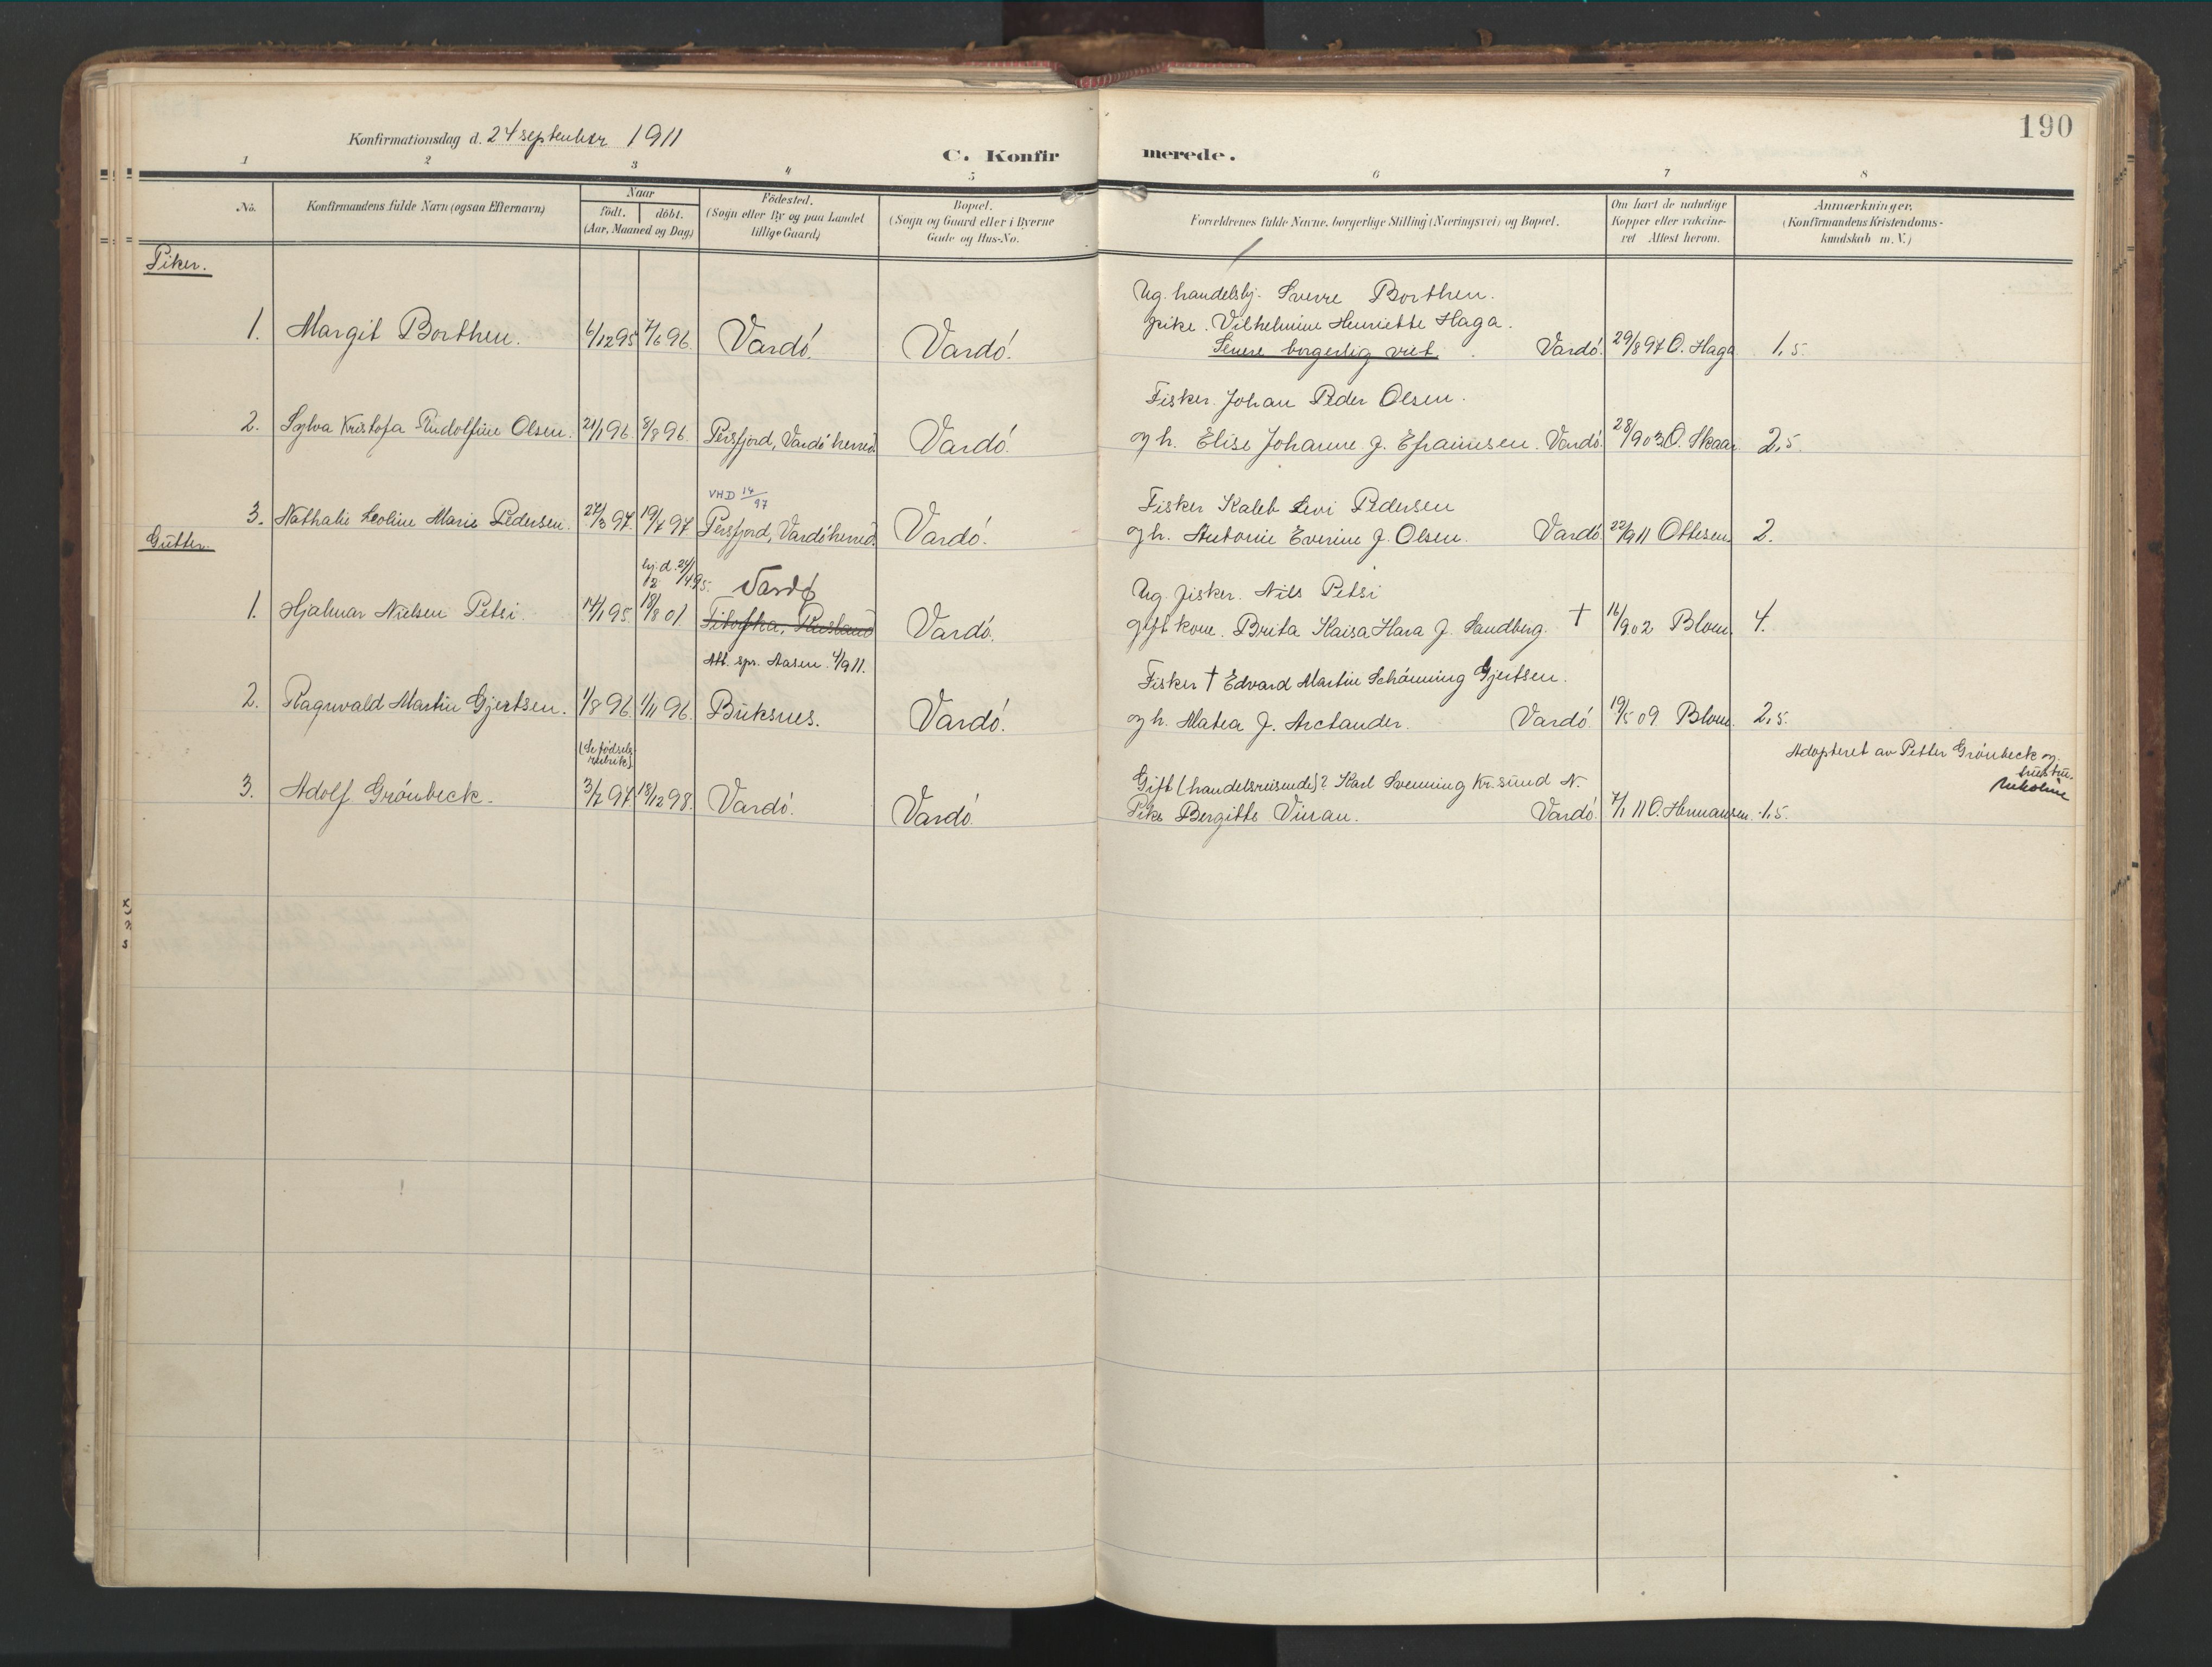 190
Konfirmationsdag d. 24 september 1911
C. Konfirmerede.
1 2 3 4 5 6 7 8
No.
Konfirmandens fulde Navn (ogsaa Efternavn)
Naar
født. døbt.
(Aar, Maaned og Dag)
Födested.
(Sogn eller By og paa Landet
tillige Gaard)
Bopæl.
(Sogn og Gaard eller i Byerne
Gade og Hus-No.
Forældrenes fulde Navne, borgerlige Stilling (Næringsvei) og Bopæl.
Om havt de naturlige
Kopper eller vakcine-
ret Attest herom.
Anmærkninger.
(Konfirmandens Kristendoms-
kundskab m. V.)
Piker.
Ug. handelsbj. Sverre Borthen.
pike. Vilhelmine Henriette Haga.
1. Margit Borthen. 6/12 95 7/6 96. Vardó. Vardó. Senere borgerlig viet. Vardó. 29/8 97 O. Haga 1,5
Fisker. Johan Peder Olsen.
2. Sylva Kristofa Rudolfine Olsen. 21/1 96. 8/8 96. Persfjord, Vardó herred. Vardó. og h. Elise Johanne f. Efraimsen. Vardó. 28/9 03 O. Skaar. 2,5.
VHD 14/97
Fisker Kaleb Levi Pedersen
3. Nathalie Leoline Marie Pedersen. 27/3 97. 19/7 97 Persfjord, Vardóherred. Vardó. og h. Antonie Everine f. Olsen. Vardó. 22/9 11 Ottesen. 2.
Gutter.
hj.d. 24/4 95.
Vardø
Ug. fisker. Nils Petsi
1. Hjalmar Nielsen Petsi. 14/1 95. 18/8 01. Titofka, Rusland Vardó. gift kone. Brita Kaisa Hara f. Sandberg. † 16/9 02 Blom. 4.
Att. spr. Aasen. 4/9 11.
Fisker † Edvard Martin Schónning Gjertsen.
2. Ragnvald Martin Gjertsen. 1/8 96. 1/11 96. Buksnes. Vardó. og h. Matea f. Arctander. Vardó. 19/5 09 Blom. 2,5.
(Se fødsels-
rubrik)
Adopteret av Petter Grónbeck og
hustru
Gift (handelsreisende)? Karl Svenning Kr.sund N.
3. Adolf Grónbeck. 3/7 97. 18/12 98. Vardó. Vardó. Pike Bergitte Vinan. Vardó. 7/1 11 O. Hermansen. 1,5.